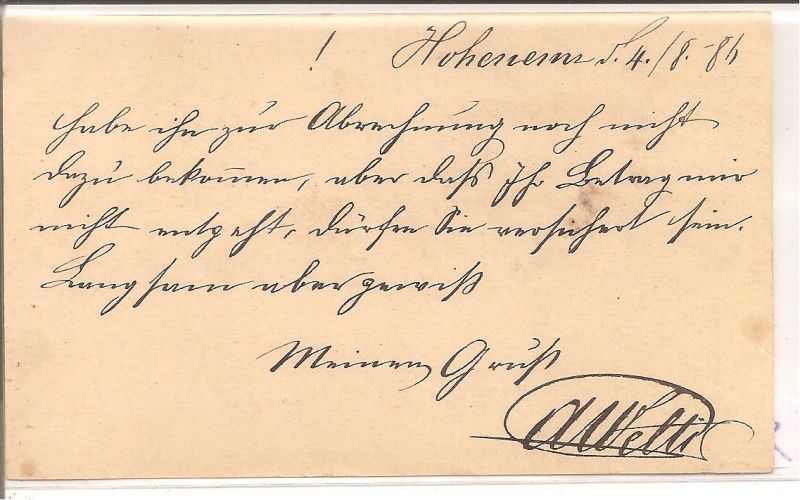 ! Hohenems d. 4./8.-86
habe ihn zur Abrechnung noch nicht
dazu bekommen, aber daß Ihr Betrag mir
nicht entgeht, dürfen Sie versichert sein.
Langsam aber gewiß
Meinen Gruß
AWelti